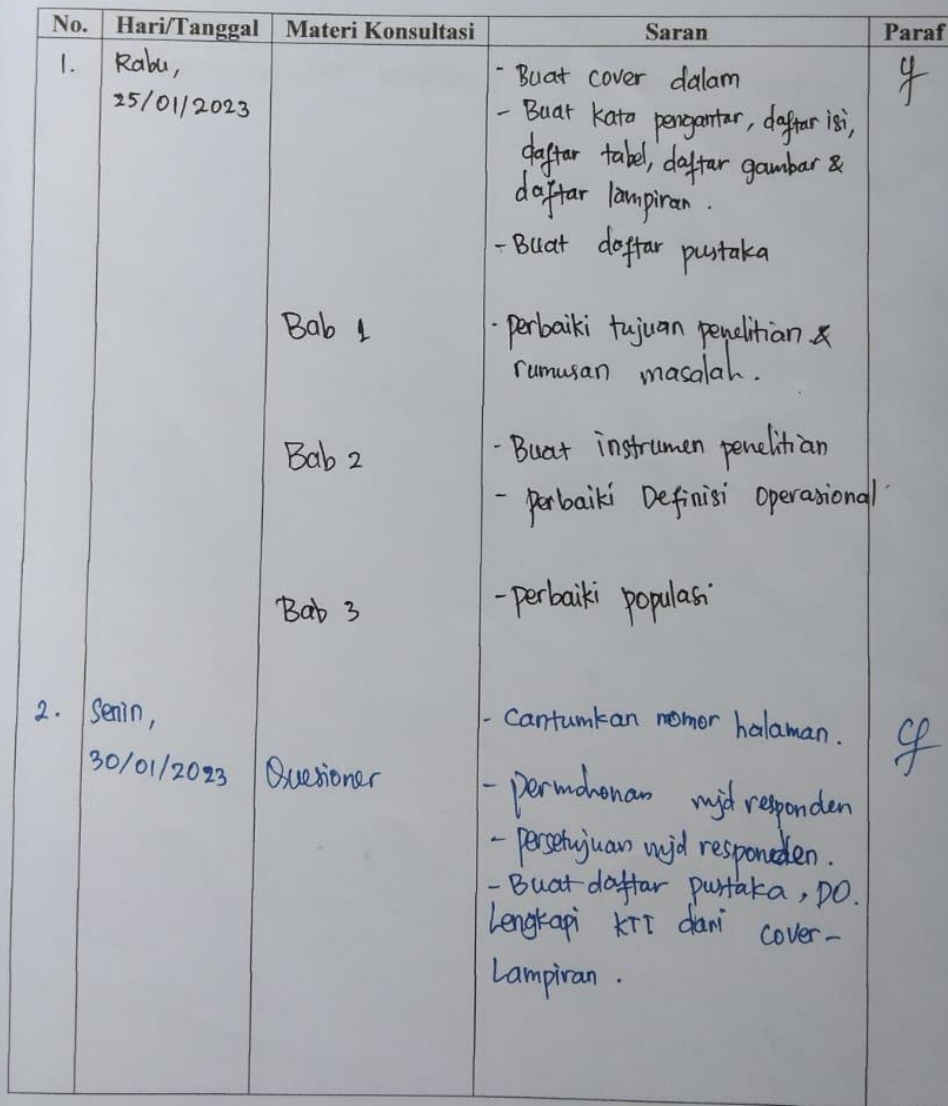 No. Hari/Tanggal Materi Konsultasi Saran Paraf
1. Rabu, - Buat cover dalam
25/01/2023 - Buat kata pengantar, daftar isi,
daftar tabel, daftar gambar &
daftar lampiran.
- Buat daftar pustaka
Bab 1 - perbaiki tujuan penelitian &
rumusan masalah.
Bab 2 - Buat instrumen penelitian
- perbaiki Definisi Operasional
Bab 3 - perbaiki populasi
2. Senin, - Cantumkan nomor halaman.
30/01/2023 Quesioner - Permohonan mjd responden
- Persetujuan mjd responeden.
- Buat daftar pustaka, DO.
Lengkapi KTI dari cover-
Lampiran.